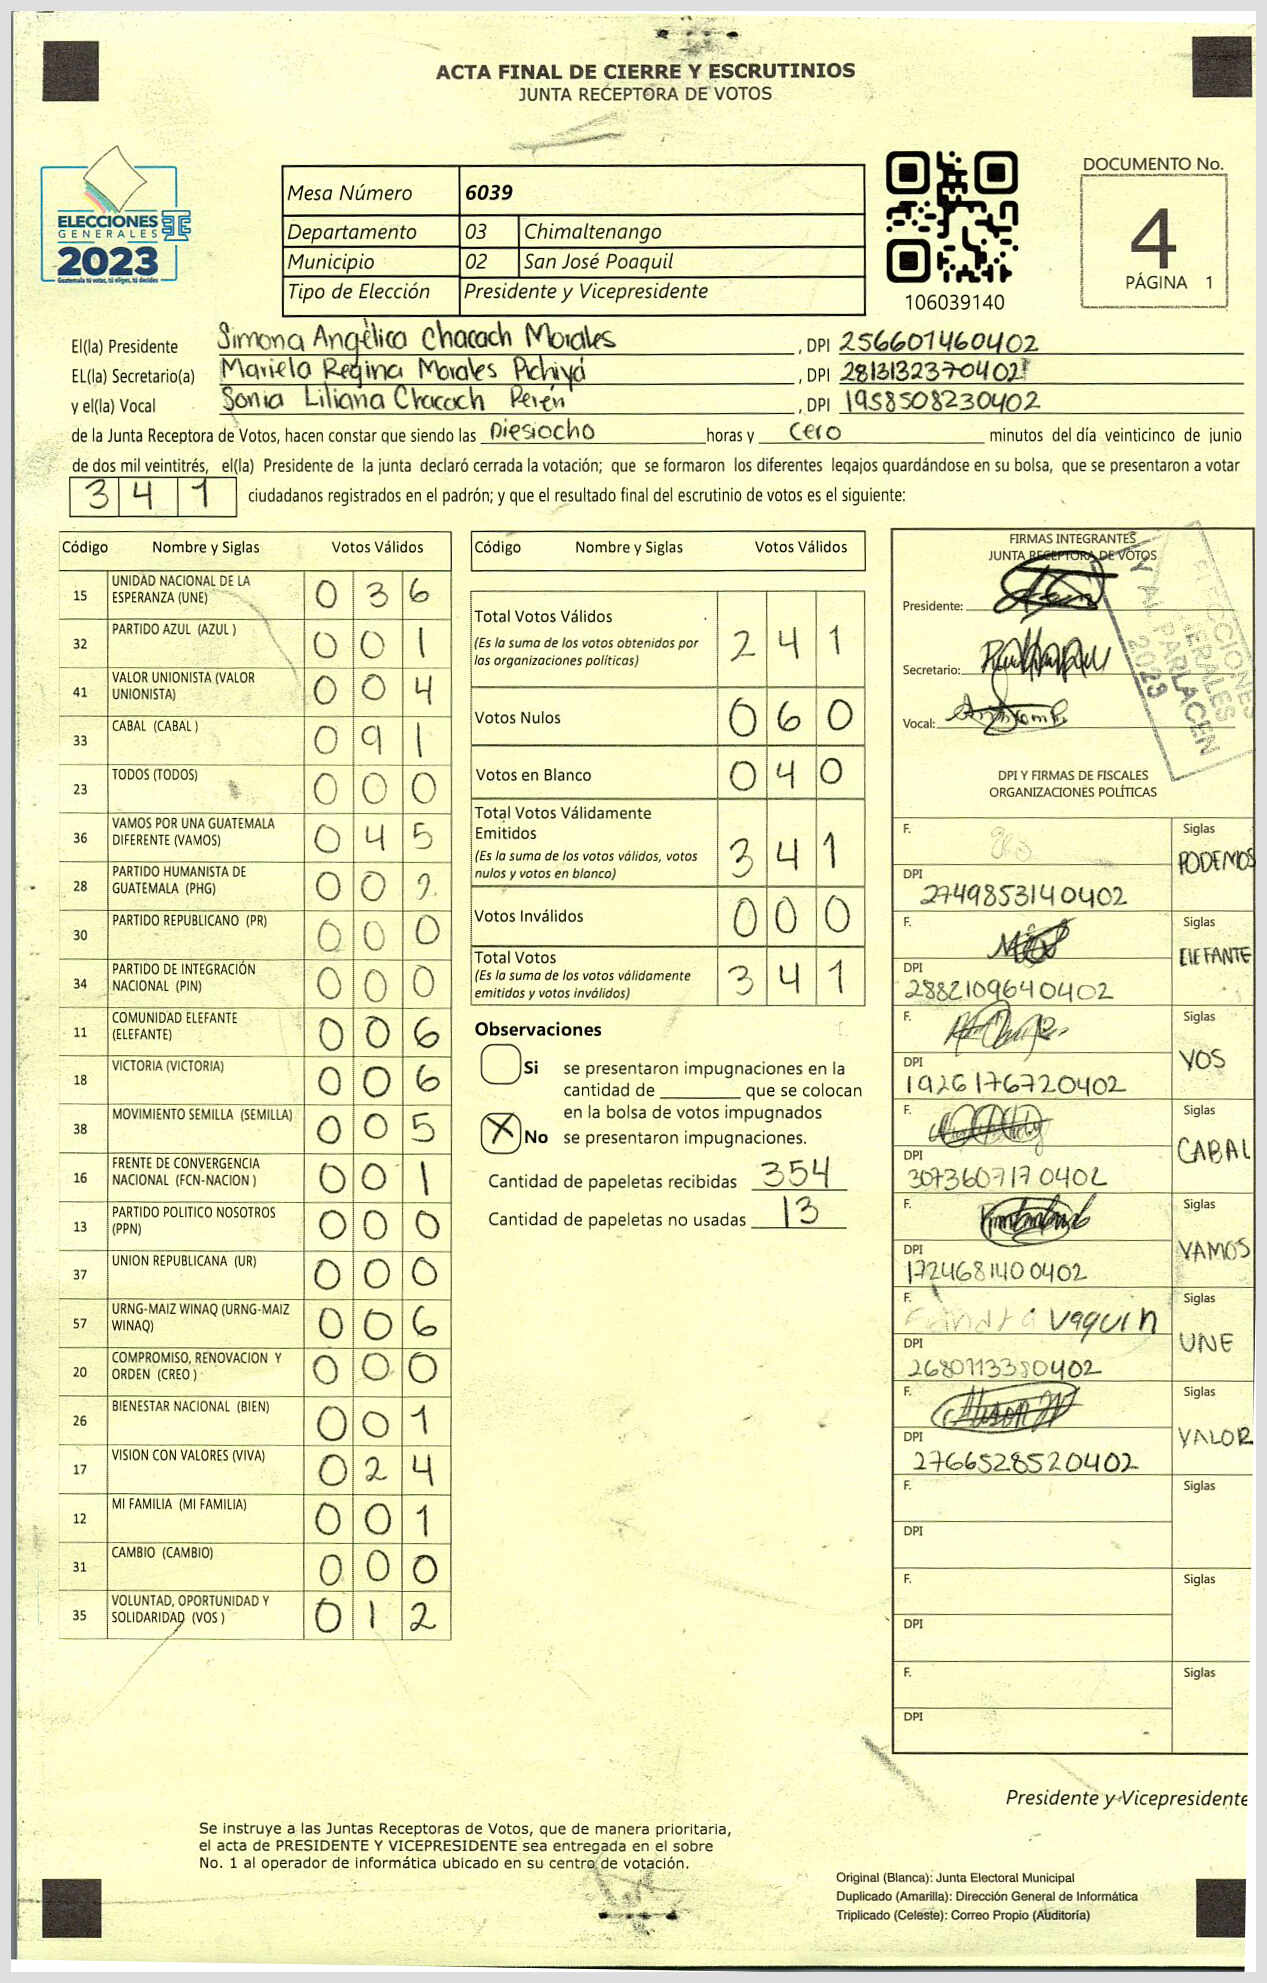 ACTA FINAL DE CIERRE Y ESCRUTINIOS
JUNTA RECEPTORA DE VOTOS
ELECCIONES
GENERALES
2023
Guatemala tú votas, tú eliges, tú decides
Mesa Número 6039
Departamento 03 Chimaltenango
Municipio 02 San José Poaquil
Tipo de Elección Presidente y Vicepresidente
106039140
DOCUMENTO No.
4
PÁGINA 1
El(la) Presidente Simona Angélica Chacach Morales, DPI 256601460402
EL(la) Secretario(a) Mariela Regina Morales Pichiyá, DPI 2813132370402
y el(la) Vocal Sonia Liliana Chacach Perén, DPI 1958508230402
de la Junta Receptora de Votos, hacen constar que siendo las Diesiocho horas y cero minutos del día veinticinco de junio
de dos mil veintitrés, el(la) Presidente de la junta declaró cerrada la votación; que se formaron los diferentes legajos guardándose en su bolsa, que se presentaron a votar
341 ciudadanos registrados en el padrón; y que el resultado final del escrutinio de votos es el siguiente:
Código Nombre y Siglas Votos Válidos
15 UNIDAD NACIONAL DE LA ESPERANZA (UNE) 036
32 PARTIDO AZUL (AZUL ) 001
41 VALOR UNIONISTA (VALOR UNIONISTA) 004
33 CABAL (CABAL ) 091
23 TODOS (TODOS) 000
36 VAMOS POR UNA GUATEMALA DIFERENTE (VAMOS) 045
28 PARTIDO HUMANISTA DE GUATEMALA (PHG) 002
30 PARTIDO REPUBLICANO (PR) 000
34 PARTIDO DE INTEGRACIÓN NACIONAL (PIN) 000
11 COMUNIDAD ELEFANTE (ELEFANTE) 006
18 VICTORIA (VICTORIA) 006
38 MOVIMIENTO SEMILLA (SEMILLA) 005
16 FRENTE DE CONVERGENCIA NACIONAL (FCN-NACION ) 001
13 PARTIDO POLITICO NOSOTROS (PPN) 000
37 UNION REPUBLICANA (UR) 000
57 URNG-MAIZ WINAQ (URNG-MAIZ WINAQ) 006
20 COMPROMISO, RENOVACION Y ORDEN (CREO ) 000
26 BIENESTAR NACIONAL (BIEN) 001
17 VISION CON VALORES (VIVA) 024
12 MI FAMILIA (MI FAMILIA) 001
31 CAMBIO (CAMBIO) 000
35 VOLUNTAD, OPORTUNIDAD Y SOLIDARIDAD (VOS ) 012
Código Nombre y Siglas Votos Válidos
Total Votos Válidos 241
(Es la suma de los votos obtenidos por
las organizaciones políticas)
Votos Nulos 060
Votos en Blanco 040
Total Votos Válidamente
Emitidos 341
(Es la suma de los votos válidos, votos
nulos y votos en blanco)
Votos Inválidos 000
Total Votos 341
(Es la suma de los votos válidamente
emitidos y votos inválidos)
Observaciones
Si se presentaron impugnaciones en la
cantidad de ________ que se colocan
en la bolsa de votos impugnados
X No se presentaron impugnaciones.
Cantidad de papeletas recibidas 354
Cantidad de papeletas no usadas 13
FIRMAS INTEGRANTES
JUNTA RECEPTORA DE VOTOS
Presidente:
Secretario:
Vocal:
ELECCIONES
GENERALES
Y AL PARLACEN
2023
DPI Y FIRMAS DE FISCALES
ORGANIZACIONES POLÍTICAS
F. Siglas PODEMOS
DPI 2749853140402
F. Siglas ElEFANTE
DPI 2882109640402
F. Siglas VOS
DPI 1926176720402
F. Siglas CABAL
DPI 3073607170402
F. Siglas VAMOS
DPI 1724681400402
F. Siglas UNE
DPI 2680113380402
F. Siglas VALOR
DPI 2766528520402
F. Siglas
DPI
F. Siglas
DPI
F. Siglas
DPI
Presidente y Vicepresidente
Se instruye a las Juntas Receptoras de Votos, que de manera prioritaria,
el acta de PRESIDENTE Y VICEPRESIDENTE sea entregada en el sobre
No. 1 al operador de informática ubicado en su centro de votación.
Original (Blanca): Junta Electoral Municipal
Duplicado (Amarilla): Dirección General de Informática
Triplicado (Celeste): Correo Propio (Auditoría)